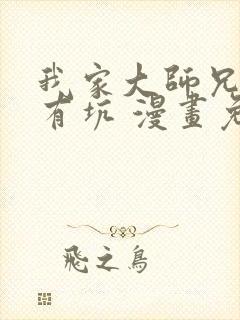 我家大師兄
有坑 漫畫免
飛之鳥